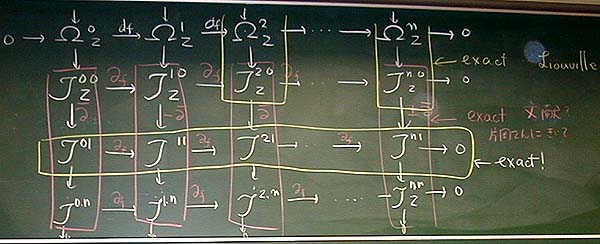 0 → Ω⁰_Z →df Ω¹_Z →df Ω²_Z → ⋯ → Ωⁿ_Z → 0
← exact Liouville
J⁰⁰_Z →∂f J¹⁰_Z →∂f J²⁰_Z → ⋯ → Jⁿ⁰_Z → 0
∂̄ -∂̄ ∂̄ ±∂̄ ← exact 文献?
J⁰¹ →∂f J¹¹ →∂f J²¹ → ⋯ →∂f Jⁿ¹ → 0
← exact!
J⁰·ⁿ →∂f J¹·ⁿ →∂f J²·ⁿ →∂f ⋯ → Jⁿⁿ_Z → 0